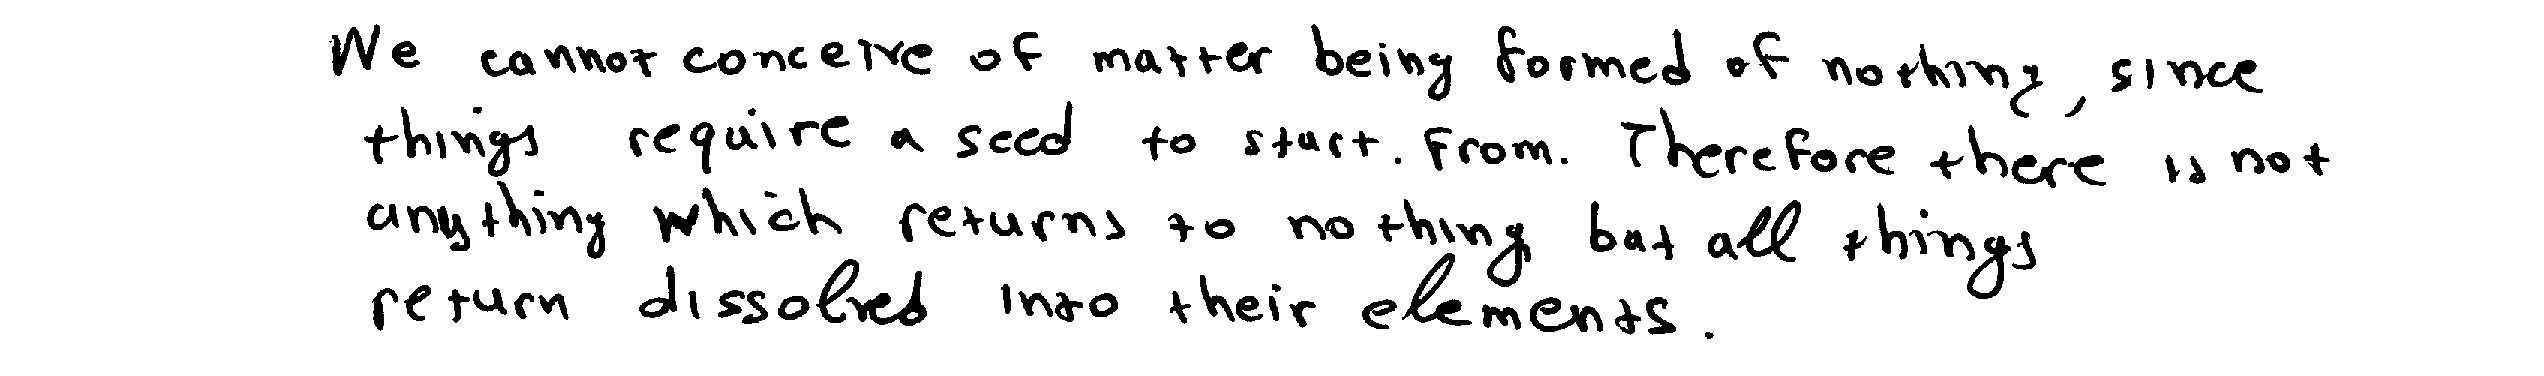 We cannot conceive of matter being formed of nothing, since
things require a seed to start. from. Therefore there is not
anything which returns to nothing but all things
return dissolved into their elements.